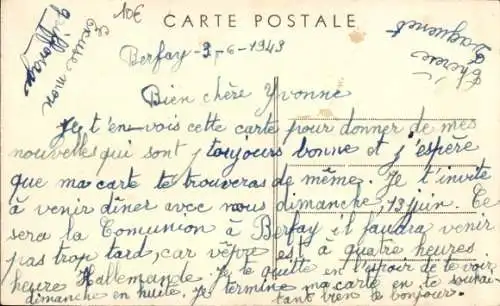 10€
CARTE POSTALE
Berfay - 3-6-1943
Bien chère Yvonne
Je t'en-vois cette carte pour donner de mes
nouvelles qui sont toujours bonne et j'espère
que ma carte te trouveras de même. Je t'invite
à venir dîner avec nous dimanche, 13 juin. Ce
sera la Comunion à Berfay il faudra venir
pas trop tard, car vêpre est à quatre heures
heure Hallemande. Je te quitte en l'espoir de te voir
dimanche en huite. Je termine ma carte en te souhai
tant bien le bonjour.